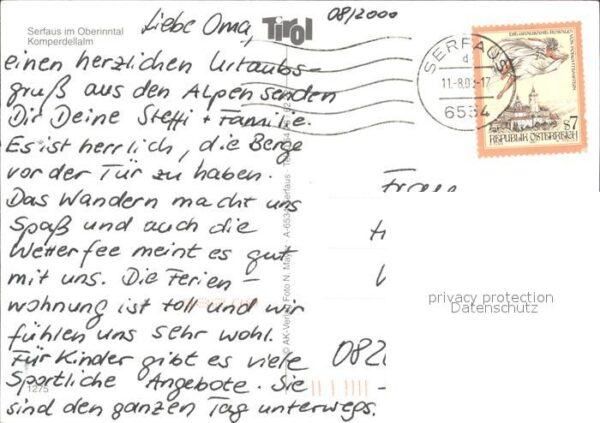 Serfaus im Oberinntal
Komperdellalm
Tirol
08/2000
Liebe Oma,
einen herzlichen Urlaubs-
gruß aus den Alpen senden
Dir Deine Steffi + Familie.
Es ist herrlich, die Berge
vor der Tür zu haben.
Das Wandern macht uns
Spaß und auch die
Wetterfee meint es gut
mit uns. Die Ferien-
wohnung ist toll und wir
fühlen uns sehr wohl.
Für Kinder gibt es viele
Sportliche Angebote. Sie
sind den ganzen Tag unterwegs.
1275
© AK-Verlag Foto N. Mayr
SERFAUS
d
6534
S7
REPUBLIK ÖSTERREICH
Frau
privacy protection
Datenschutz
082